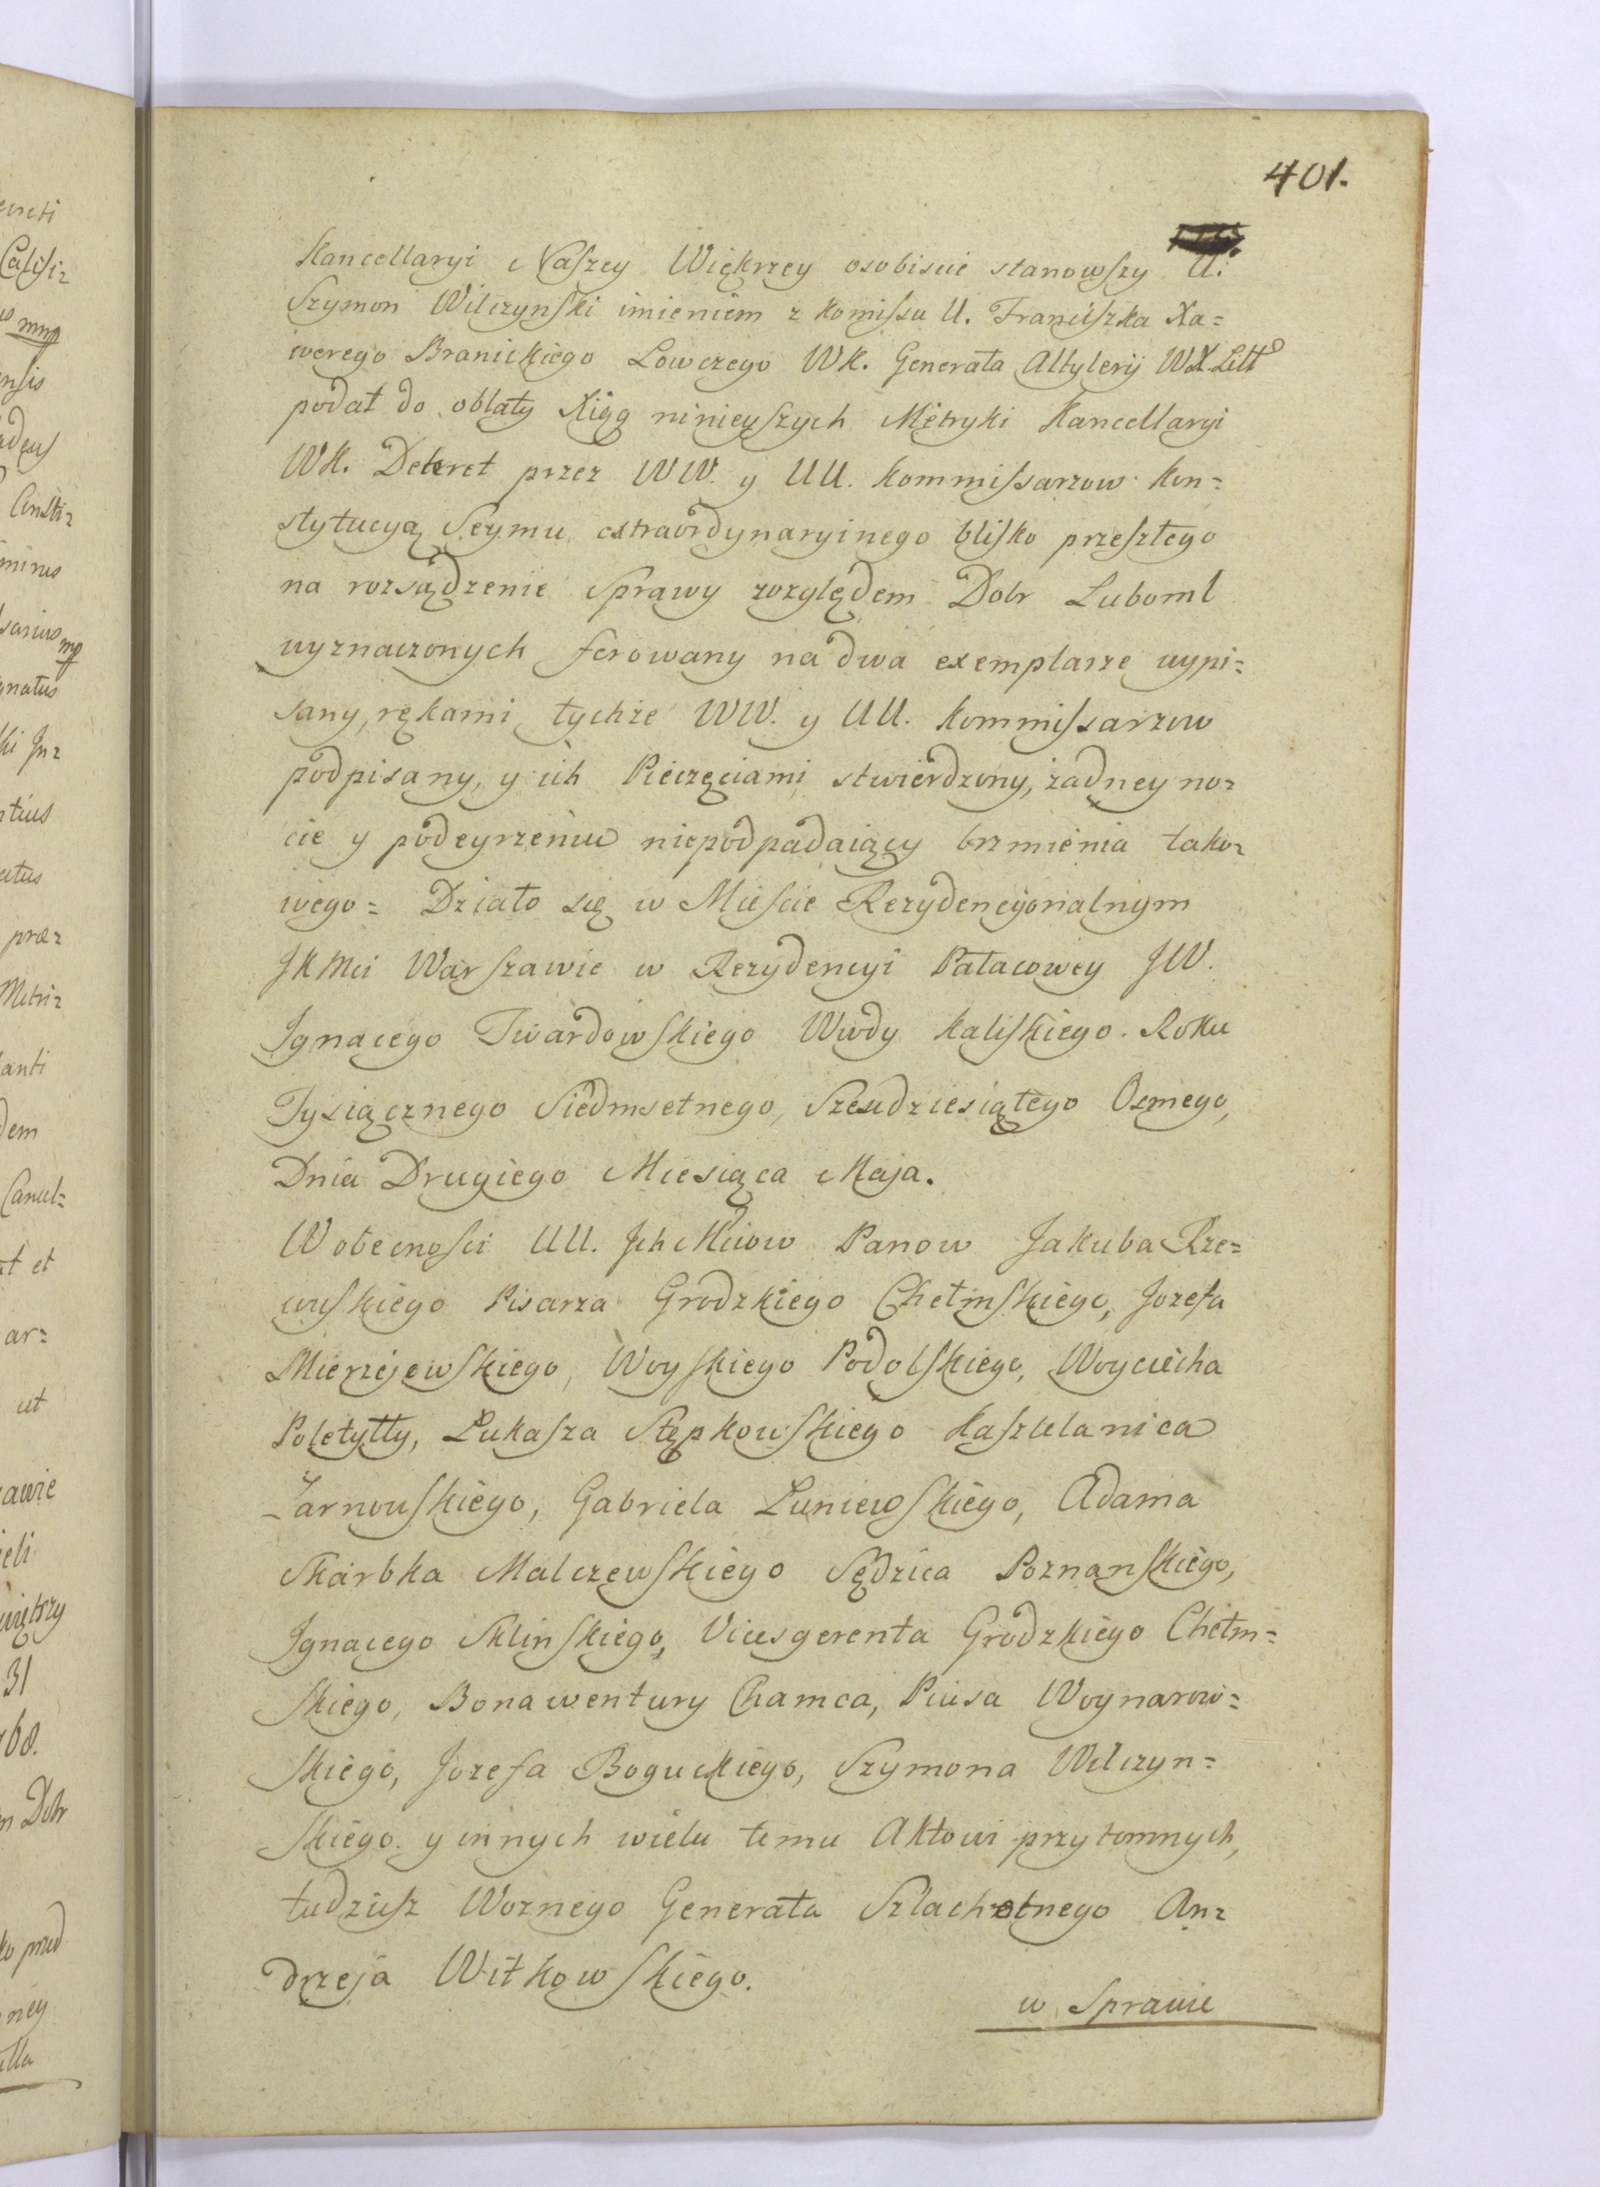 401.
Kancellaryi Naszey Więkrzey osobiscie stanowszy U.
Szymon Wilczynski imieniem z komissu U. Franciszka Xa=
werego Branickiego Lowczego WK. Generała Altylerij WX Litt
podał do oblaty Xiąg ninieyszych Metryki Kancellaryi
WK. Dekret przez WW. y UU. Kommissarzow kon=
stytucyą Seymu extraordynaryinego blisko przeszłego
na rozsądzenie Sprawy wzgłędem Dobr Luboml
wyznaczonych ferowany na dwa exemplarze wypi=
sany, rękami tychże WW. y UU. Kommissarzow
podpisany, y ich Pieczęciami stwierdzony, żadney no=
cie y podeyrzeniu niepodpadaiący brzmienia tako=
wego= Działo się w Mieście Rezydencyonalnym
JKMci Warszawie w Rezydencyi Pałacowey JW.
Ignacego Twardowskiego Wwdy Kaliskiego. Roku
Tysiącznego Siedmsetnego, Szesdziesiątego Osmego,
Dnia Drugiego Miesiąca Maja.
W obecności UU. Jch Mciow Panow Jakuba Rze=
wuskiego Pisarza Grodzkiego Chełmskiego, Jozefa
Mierzejewskiego, Woyskiego Podolskiego, Woyciecha
Poletyłły, Łukasza Stępkowskiego Kasztelanica
Żarnowskiego, Gabriela Łuniewskiego, Adama
Skarbka Malczewskiego Sędzica Poznanskiego,
Ignacego Sklinskiego, Vicesgerenta Grodzkiego Chełm=
skiego, Bonawentury Chamca, Piusa Woynarow=
skiego, Jozefa Boguckiego, Szymona Wilczyn=
skiego y innych wielu temu Aktowi przytomnych,
tudziesz Woznego Generała Szlachetnego An=
drzeja Witkowskiego.
w Sprawie